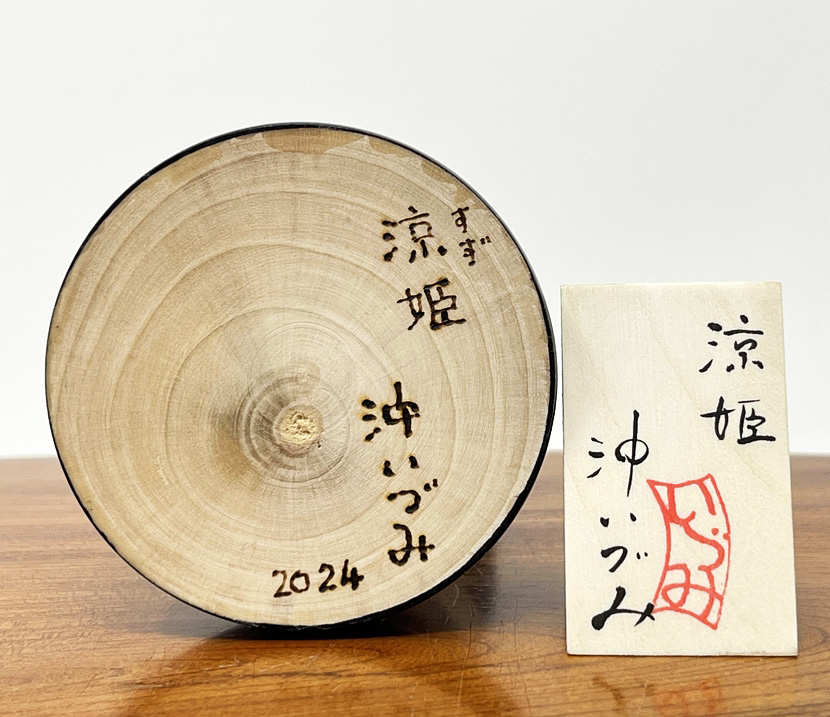 すず
涼姫
沖いづみ
2024
涼姫
沖いづみ
いづみ